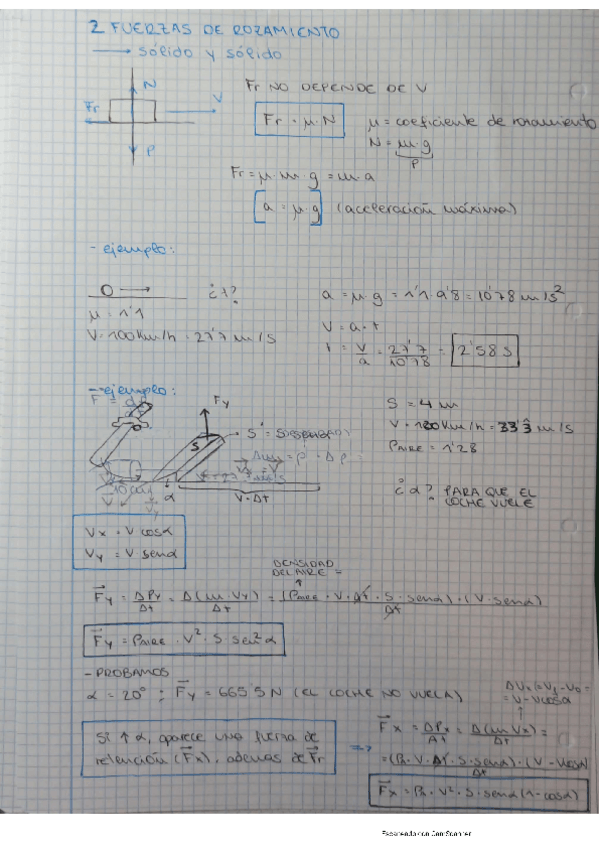 2 FUERZAS DE ROZAMIENTO
→ sólido y sólido
N
Fr
V
P
Fr NO DEPENDE DE V
Fr = μ · N
μ = coeficiente de rozamiento
N = m · g
P
Fr = μ · m · g = m · a
a = μ · g (aceleración máxima)
- ejemplo:
¿t?
μ = 1'1
V = 100 Km/h = 27'7 m/s
a = μ · g = 1'1 · 9'8 = 10'78 m/s²
V = a · t
t = V/a = 27'7/10'78 = 2'58 s
- ejemplo:
Fy
S
α
V · Δt
S = 4 m
V = 120 Km/h = 33'3 m/s
ρAIRE = 1'28
¿α? PARA QUE EL
COCHE VUELE
Vx = V cosα
Vy = V senα
DENSIDAD
DEL AIRE =
Fy = ΔPy/Δt = Δ(m · Vy)/Δt = (ρAIRE · V · Δt · S · senα) · (V · senα)/Δt
Fy = ρAIRE · V² · S · sen²α
- PROBAMOS
α = 20° : Fy = 665'5 N (EL COCHE NO VUELA)
ΔVx = Vf - V0 =
= V - Vcosα
Si ↑ α, aparece una fuerza de
retención (Fx) además de Fr
⇒
Fx = ΔPx/Δt = Δ(m Vx)/Δt =
Fx = ρa · V² · S · senα (1 - cosα)
Escaneado con CamScanner